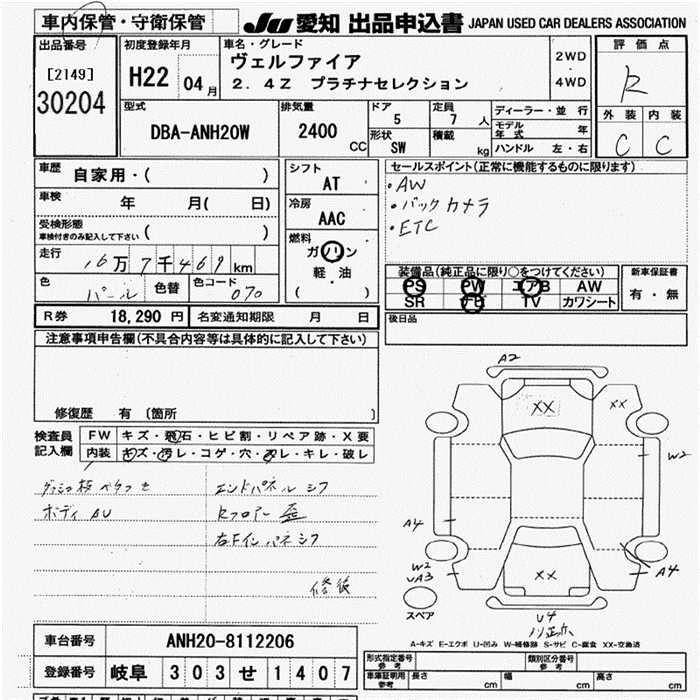 車内保管・守衛保管
JU 愛知 出品申込書 JAPAN USED CAR DEALERS ASSOCIATION
出品番号 [2149] 30204
初度登録年月 H22 04月
車名・グレード ヴェルファイア
2.4Z プラチナセレクション
2WD ・ 4WD
評価点 R
外装 C 内装 C
型式 DBA-ANH20W
排気量 2400 CC
ドア 5
形状 SW
定員 7 人
積載 kg
ディーラー・並行
モデル年式 年
ハンドル 左・右
車歴 自家用・( )
車検 年 月( 日)
受検形態 車検付きのみ記入して下さい ( )
走行 16万7千469km
色 パール 色替 色コード 070
シフト AT
冷房 AAC
燃料 ガソリン
軽・油
( )
セールスポイント(正常に機能するものに限ります)
・AW
・バックカメラ
・ETC
装備品(純正品に限り○をつけてください)
PS PW エアB AW
SR TV カワシート
新車保証書
有・無
R券 18,290円 名変通知期限 月 日
後日品
注意事項申告欄(不具合内容等は具体的に記入して下さい)
修復歴 有 〔箇所 〕
検査員記入欄
FW キズ・飛石・ヒビ割・リペア跡・X要
内装 キズ・汚レ・コゲ・穴・スレ・キレ・破レ
エンドパネルシフ
ボディ AU
Rフロアー歪
右Fインパネシフ
修復
A2
XX
XX
W2
A4
W2
UA3
A4
XX
スペア
U4
A-キズ E-エクボ U-凹み W-補修跡 S-サビ C-腐食 XX-交換済
車台番号 ANH20-8112206
登録番号 岐阜 303 せ 1407
形式指定番号 参考
類別区分番号 参考
車庫証明用 参考 長さ cm 幅 cm 高さ cm